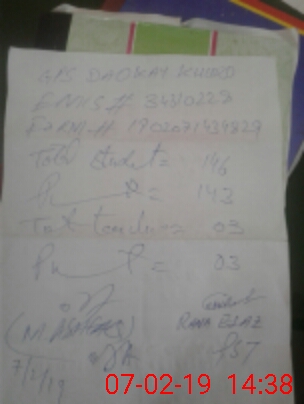 GPS DAOKAY KHURD
EMIS # 34310229
EXAM # 1902071434829
Total students = 146
P = 143
Total teachers = 03
P = 03
(M. ASHFAQ)
RANA EJAZ
PST
7/2/19
07-02-19 14:38